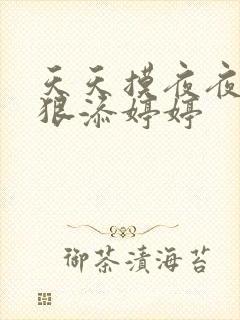 天天摸夜夜
狠添婷婷
御茶漬海苔